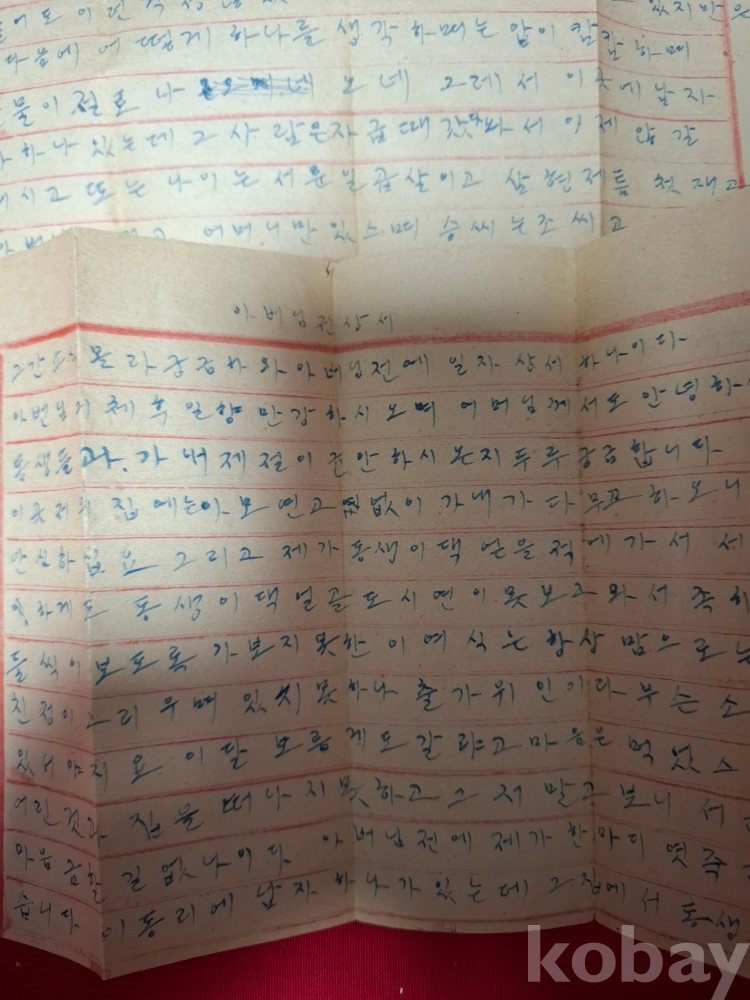 어도 이런 있지만은
다음에 어떻게 하나를 생각 하며는 앞이 캄캄 하며
물이 절로 나 오네 그레서 이곳에 남자
하나 있는데 그 사람은 자금때 갔다 와서 이제
시고 또는 나이는 서른일곱살이고 삼형제틈 첫재고
어머니만 있스며 승씨는 조씨고
아버님전상서
그간 몰라 궁금하와 아버님전에 일자 상서 하나이다
아번님 체후일향 만강하시오며 어머님께서도 안녕하
동생들과. 가내제절이 균안하시는지 두루 궁금합니다
이곳 저의 집에는 아모 연고 없이 가내가 다 무고하오니
안심하십요 그리고 제가 동생이댁 얻을 적에 가서 세
하게도 동생이댁 얼골도 시연이 못보고 와서 족히
들씩이 보도록 가보지 못한 이 여식는 항상 맘으로는
친정이 그리우며 있지 못하나 출가위인이다 부는 소
있서야지요 이달 보름게도 갈라고 마음은 먹었스
어린것과 집을 떠나지 못하고 그저 말고보니 서
마음 금할 길 없나이다 아버님전에 제가 한마디 엿쭉
습니다 이 동리에 남자 하나가 있는데 그집에서 동생
kobay